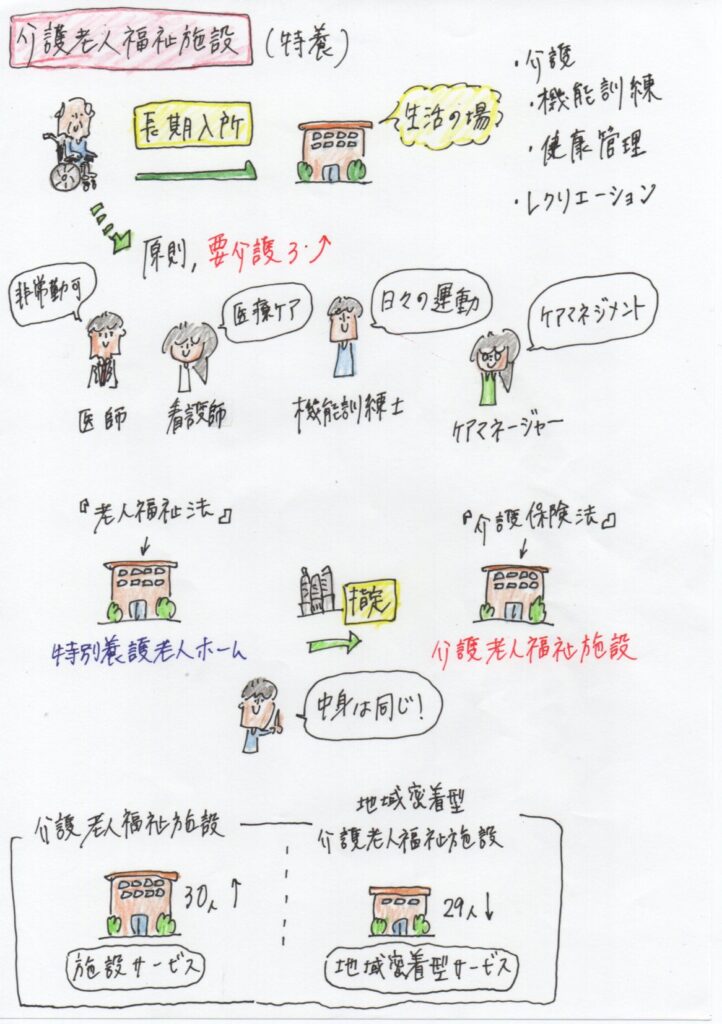 介護老人福祉施設 (特養)
・介護
・機能訓練
・健康管理
・レクリエーション
長期入所
生活の場
原則, 要介護3・↑
非常勤可
医療ケア
日々の運動
ケアマネジメント
医師
看護師
機能訓練士
ケアマネージャー
『老人福祉法』
↓
特別養護老人ホーム
指定
『介護保険法』
↓
介護老人福祉施設
中身は同じ!
介護老人福祉施設
30人 ↑
施設サービス
地域密着型
介護老人福祉施設
29人 ↓
地域密着型サービス